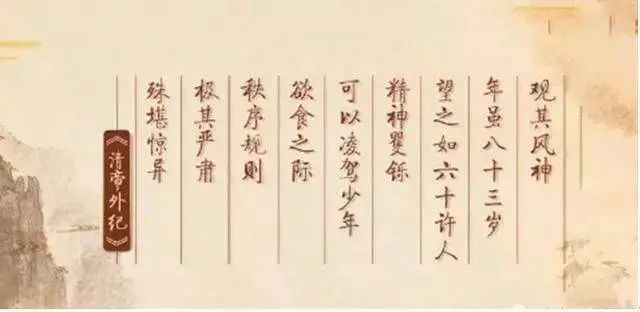 观其风神
年虽八十三岁
望之如六十许人
精神矍铄
可以凌驾少年
欲食之际
秩序规则
极其严肃
殊堪惊异
清帝外纪